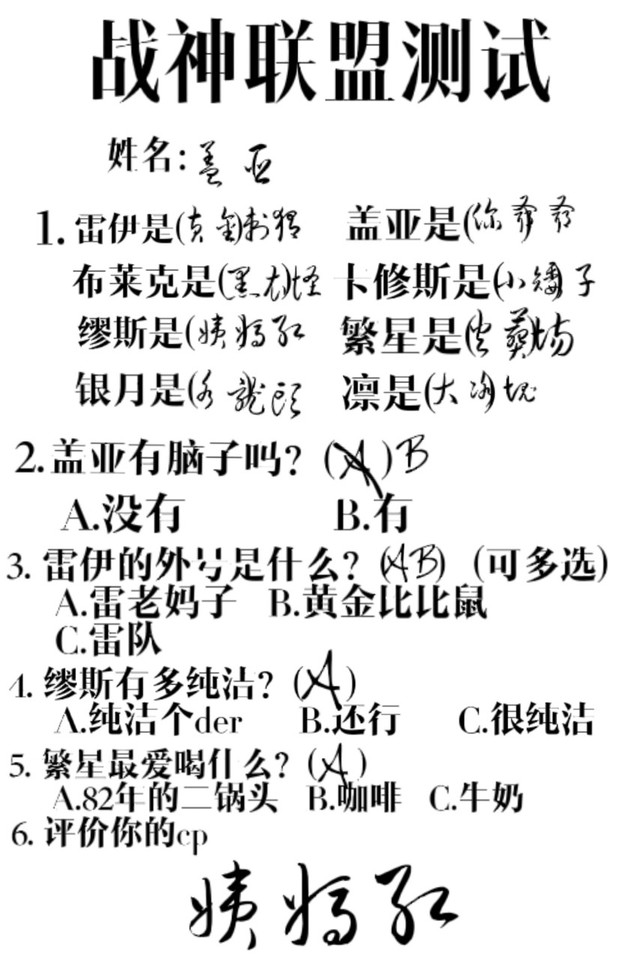 战神联盟测试
姓名:盖亚
1.雷伊是(黄金刺猬 盖亚是(你爷爷
布莱克是(黑衣怪 卡修斯是(小矮子
缪斯是(姨妈红 繁星是(
银月是(水龙头 凛是(大冰块
2.盖亚有脑子吗?(A)B
A.没有 B.有
3. 雷伊的外号是什么?(AB) (可多选)
A.雷老妈子 B.黄金比比鼠
C.雷队
4. 缪斯有多纯洁?(A)
A.纯洁个der B.还行 C.很纯洁
5. 繁星最爱喝什么?(A)
A.82年的二锅头 B.咖啡 C.牛奶
6. 评价你的cp
姨妈红